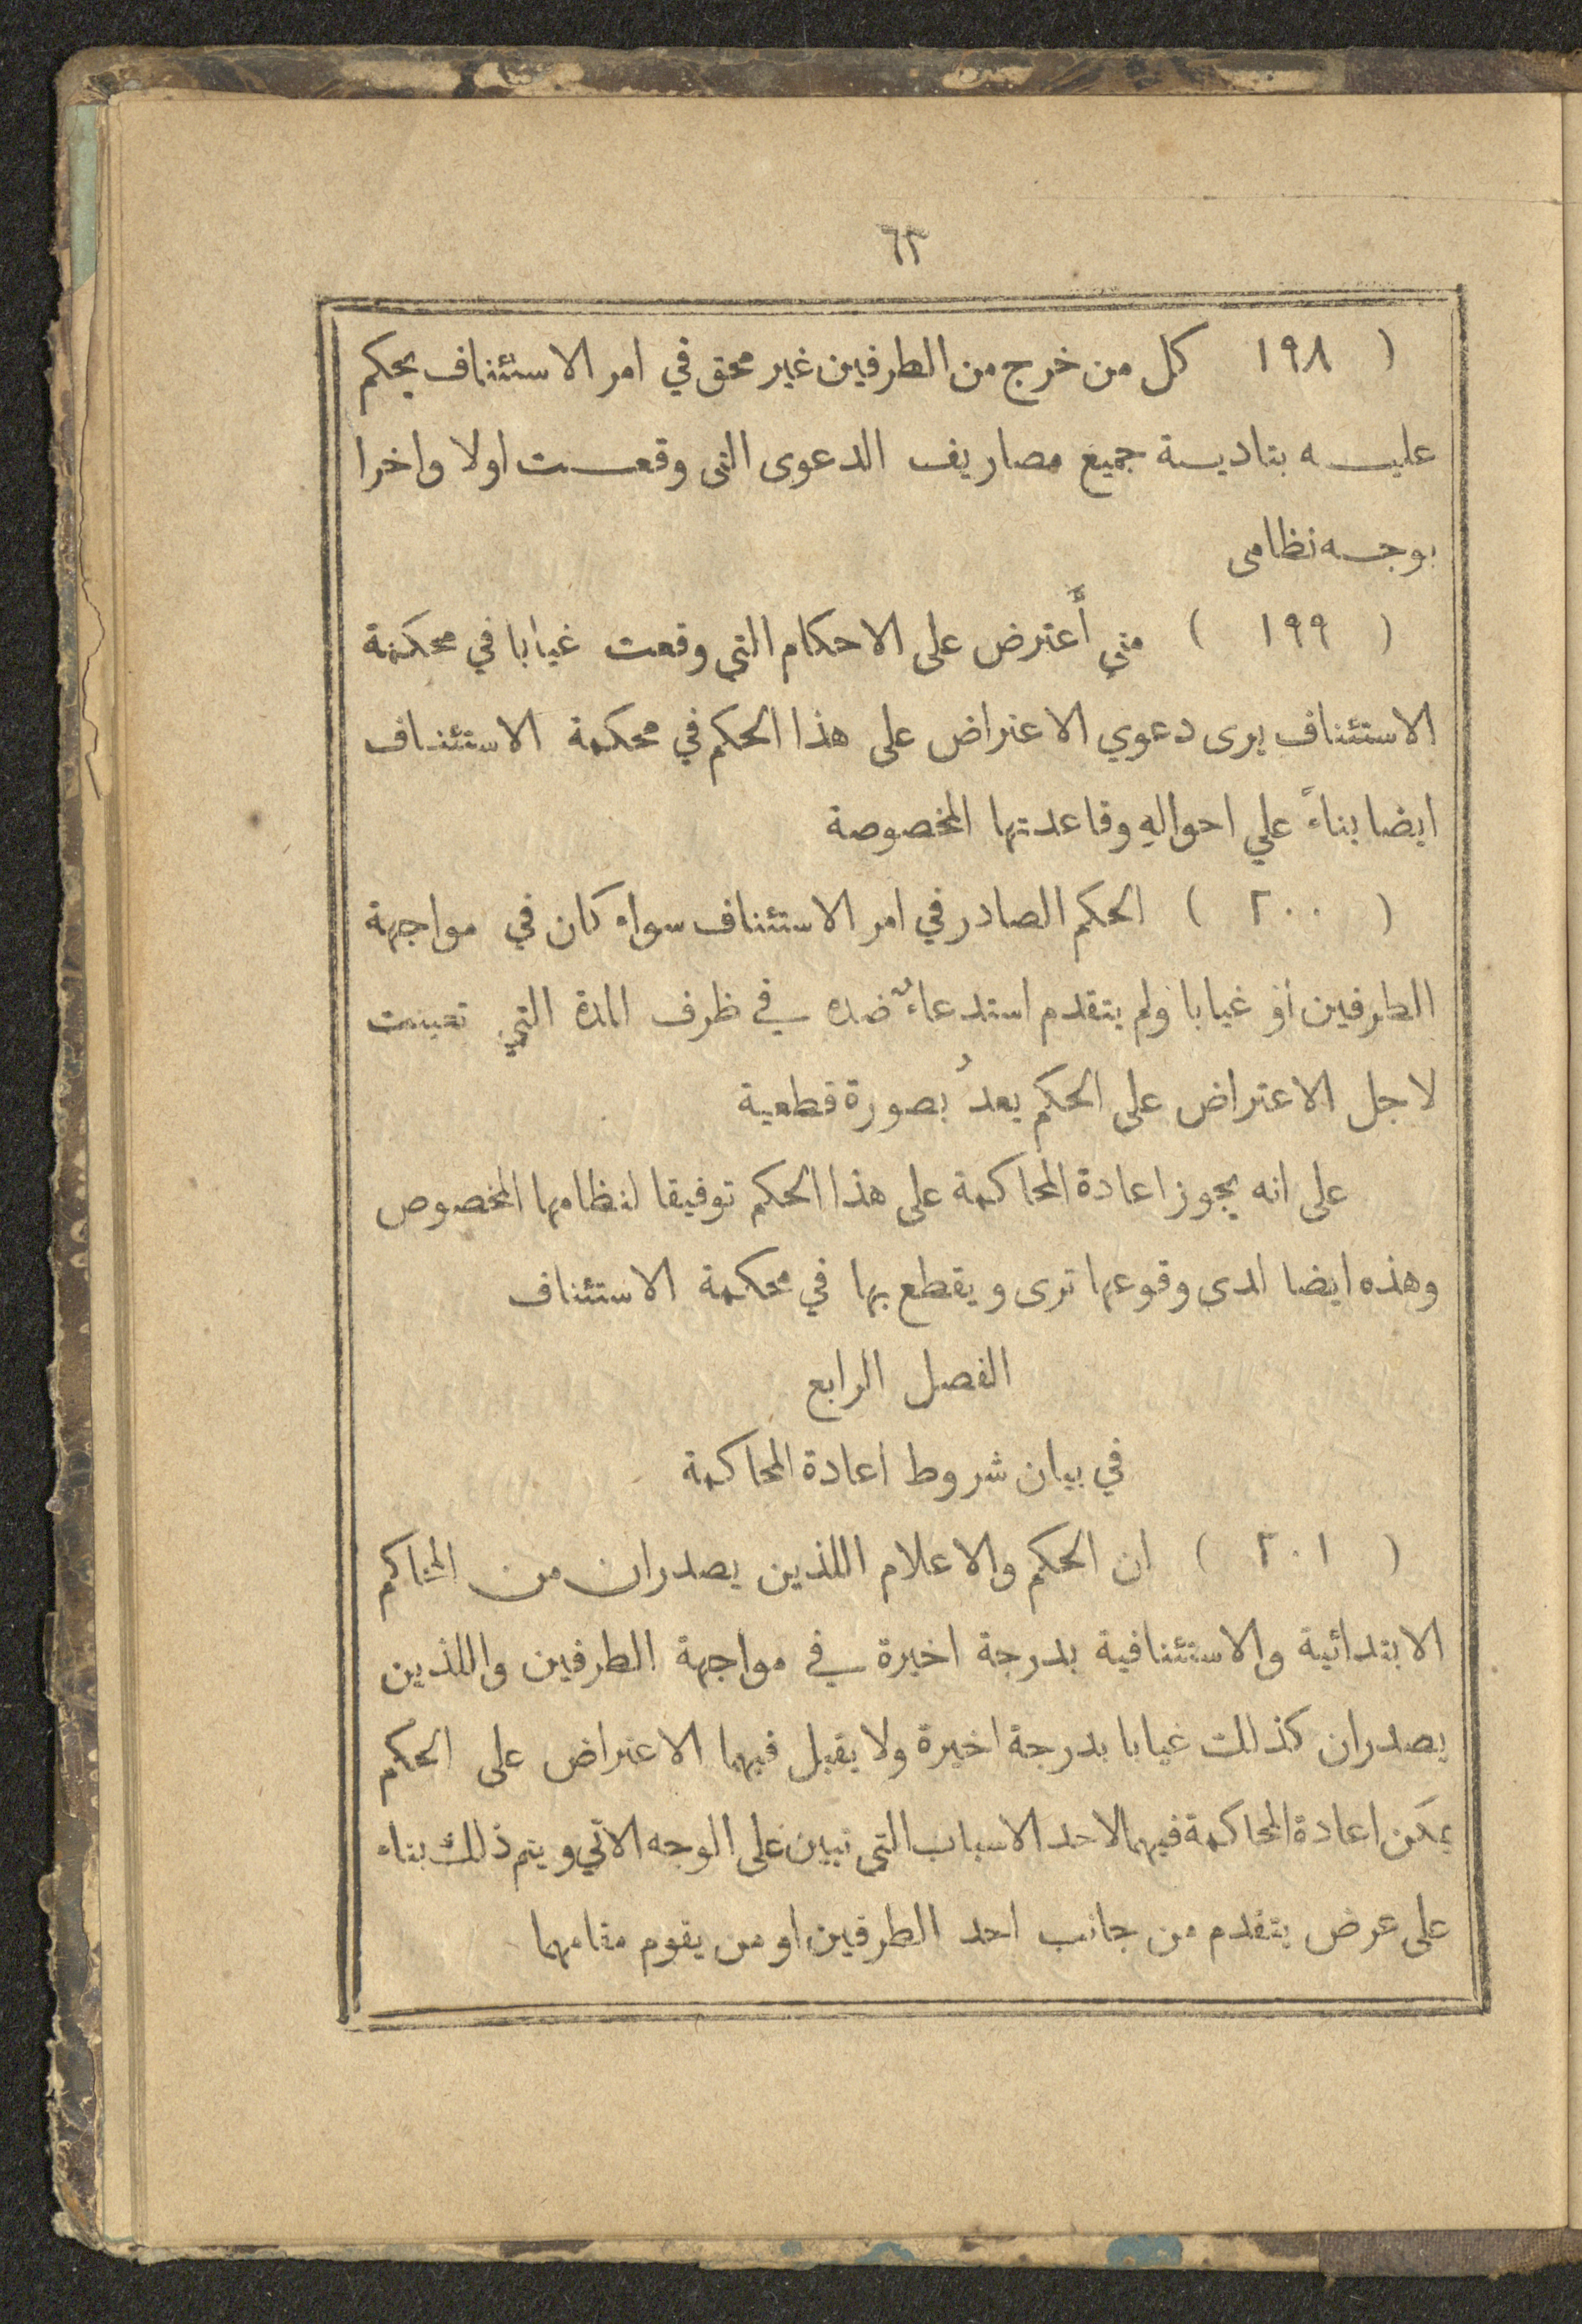 ٦٣
( ١٩٨ كل من خرج من الطرفين غير محق في امر الاستئناف يحكم
عليه بتادية جميع مصاريف الدعوى التى وقعت اولا واخرا
بوجه نظامى
( ١٩٩ ) متي أُعترض على الاحكام التي وقعت غيابا في محكمة
الاستئناف يرى دعوي الاعتراض على هذا الحكم في محكمة الاستئناف
ايضا بناءً علي احوالهِ وقاعدتها المخصوصة
( ٢٠٠ ) الحكم الصادر في امر الاستئناف سواء كان في مواجهة
الطرفين او غيابا ولم يتقدم استدعاءٌ ضده في ظرف المدة التي تعينت
لاجل الاعتراض على الحكم يعدُ بصورة قطعية
على انه يجوز اعادة المحاكمة على هذا الحكم توفيقا لنظامها المخصوص
وهذه ايضا لدى وقوعها ترى ويقطع بها في محكمة الاستئناف
الفصل الرابع
في بيان شروط اعادة المحاكمة
( ٢٠١ ) ان الحكم والاعلام اللذين يصدران من المحاكم
الابتدائية والاستئنافية بدرجة اخيرة في مواجهة الطرفين واللذين
يصدران كذلك غيابا بدرجة اخيرة ولا يقبل فيهما الاعتراض على الحكم
يمكن اعادة المحاكمة فيهما لاحد الاسباب التي تبين على الوجه الاتي ويتم ذلك بناء
على عرض يتقدم من جانب احد الطرفين او من يقوم مقامهما